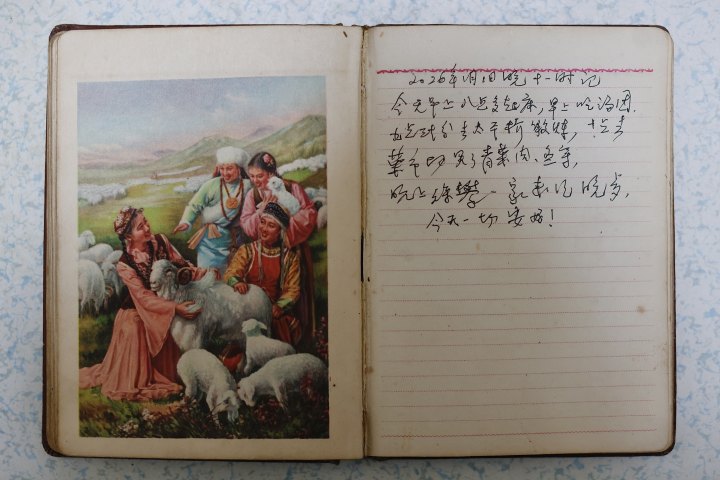 2026年1月1日晚十一时记
今天早上八点多起床,早上吃汤团.
九点钟去太平桥锻炼,十点去
菜市场买了青菜肉、鱼等,
晚上 一家来吃晚饭,
今天一切安好!